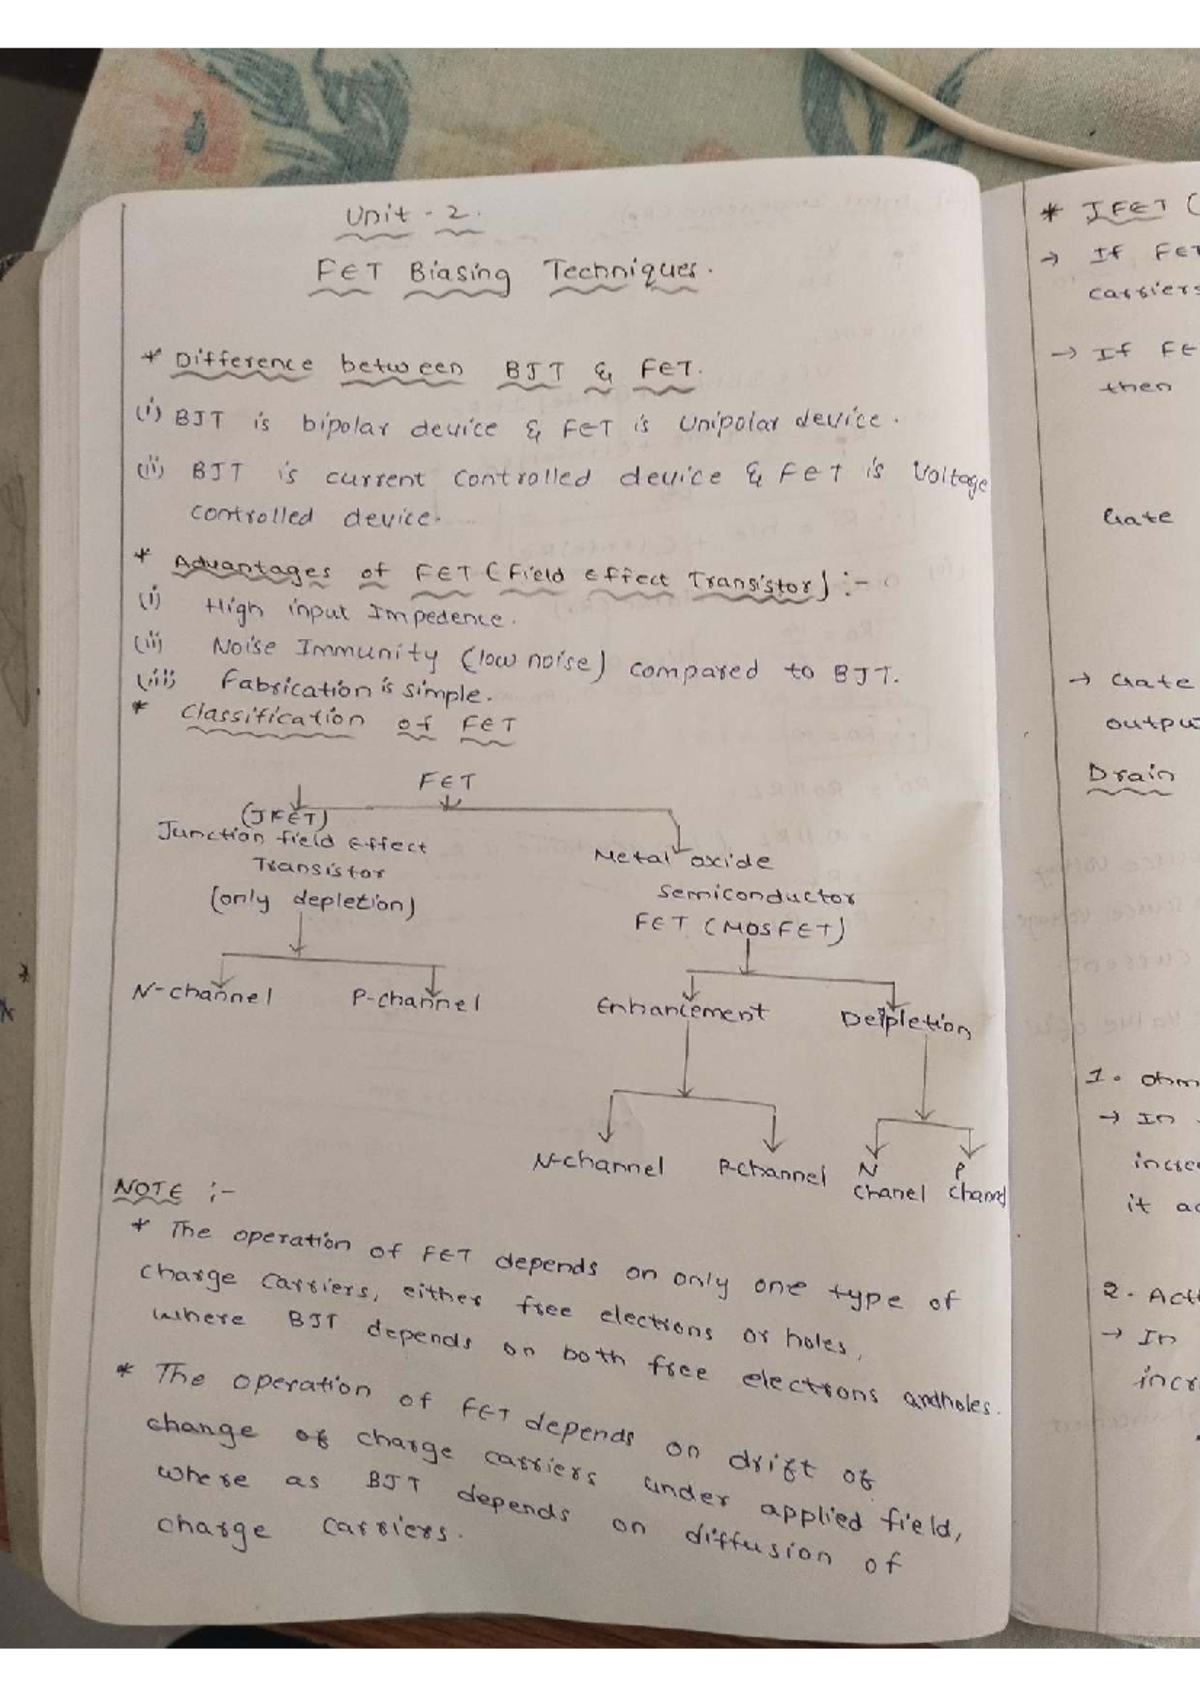 Unit - 2.
FET Biasing Techniques.
* Difference between BJT & FET.
(i) BJT is bipolar device & FET is Unipolar device.
(ii) BJT is current controlled device & FET is Voltage
controlled device.
* Advantages of FET (Field Effect Transistor) :-
(i) High input Impedence.
(ii) Noise Immunity (low noise) compared to BJT.
(iii) Fabrication is simple.
* Classification of FET
FET
(JFET)
Junction field Effect
Transistor
(only depletion)
Metal oxide
Semiconductor
FET (MOSFET)
N-channel P-channel
Enhancement Delpletion
N-channel P-channel N P
Chanel Channel
NOTE :-
* The operation of FET depends on only one type of
charge carriers, either free electrons or holes,
where BJT depends on both free electrons and holes.
* The operation of FET depends on drift of
change of charge carriers under applied field,
where as BJT depends on diffusion of
charge carriers.
* JFET (
→ If FET
carriers
→ If FE
then
Gate
→ Gate
outpu
Drain
1. ohm
→ In
incre
it
2. Act
→ In
incr